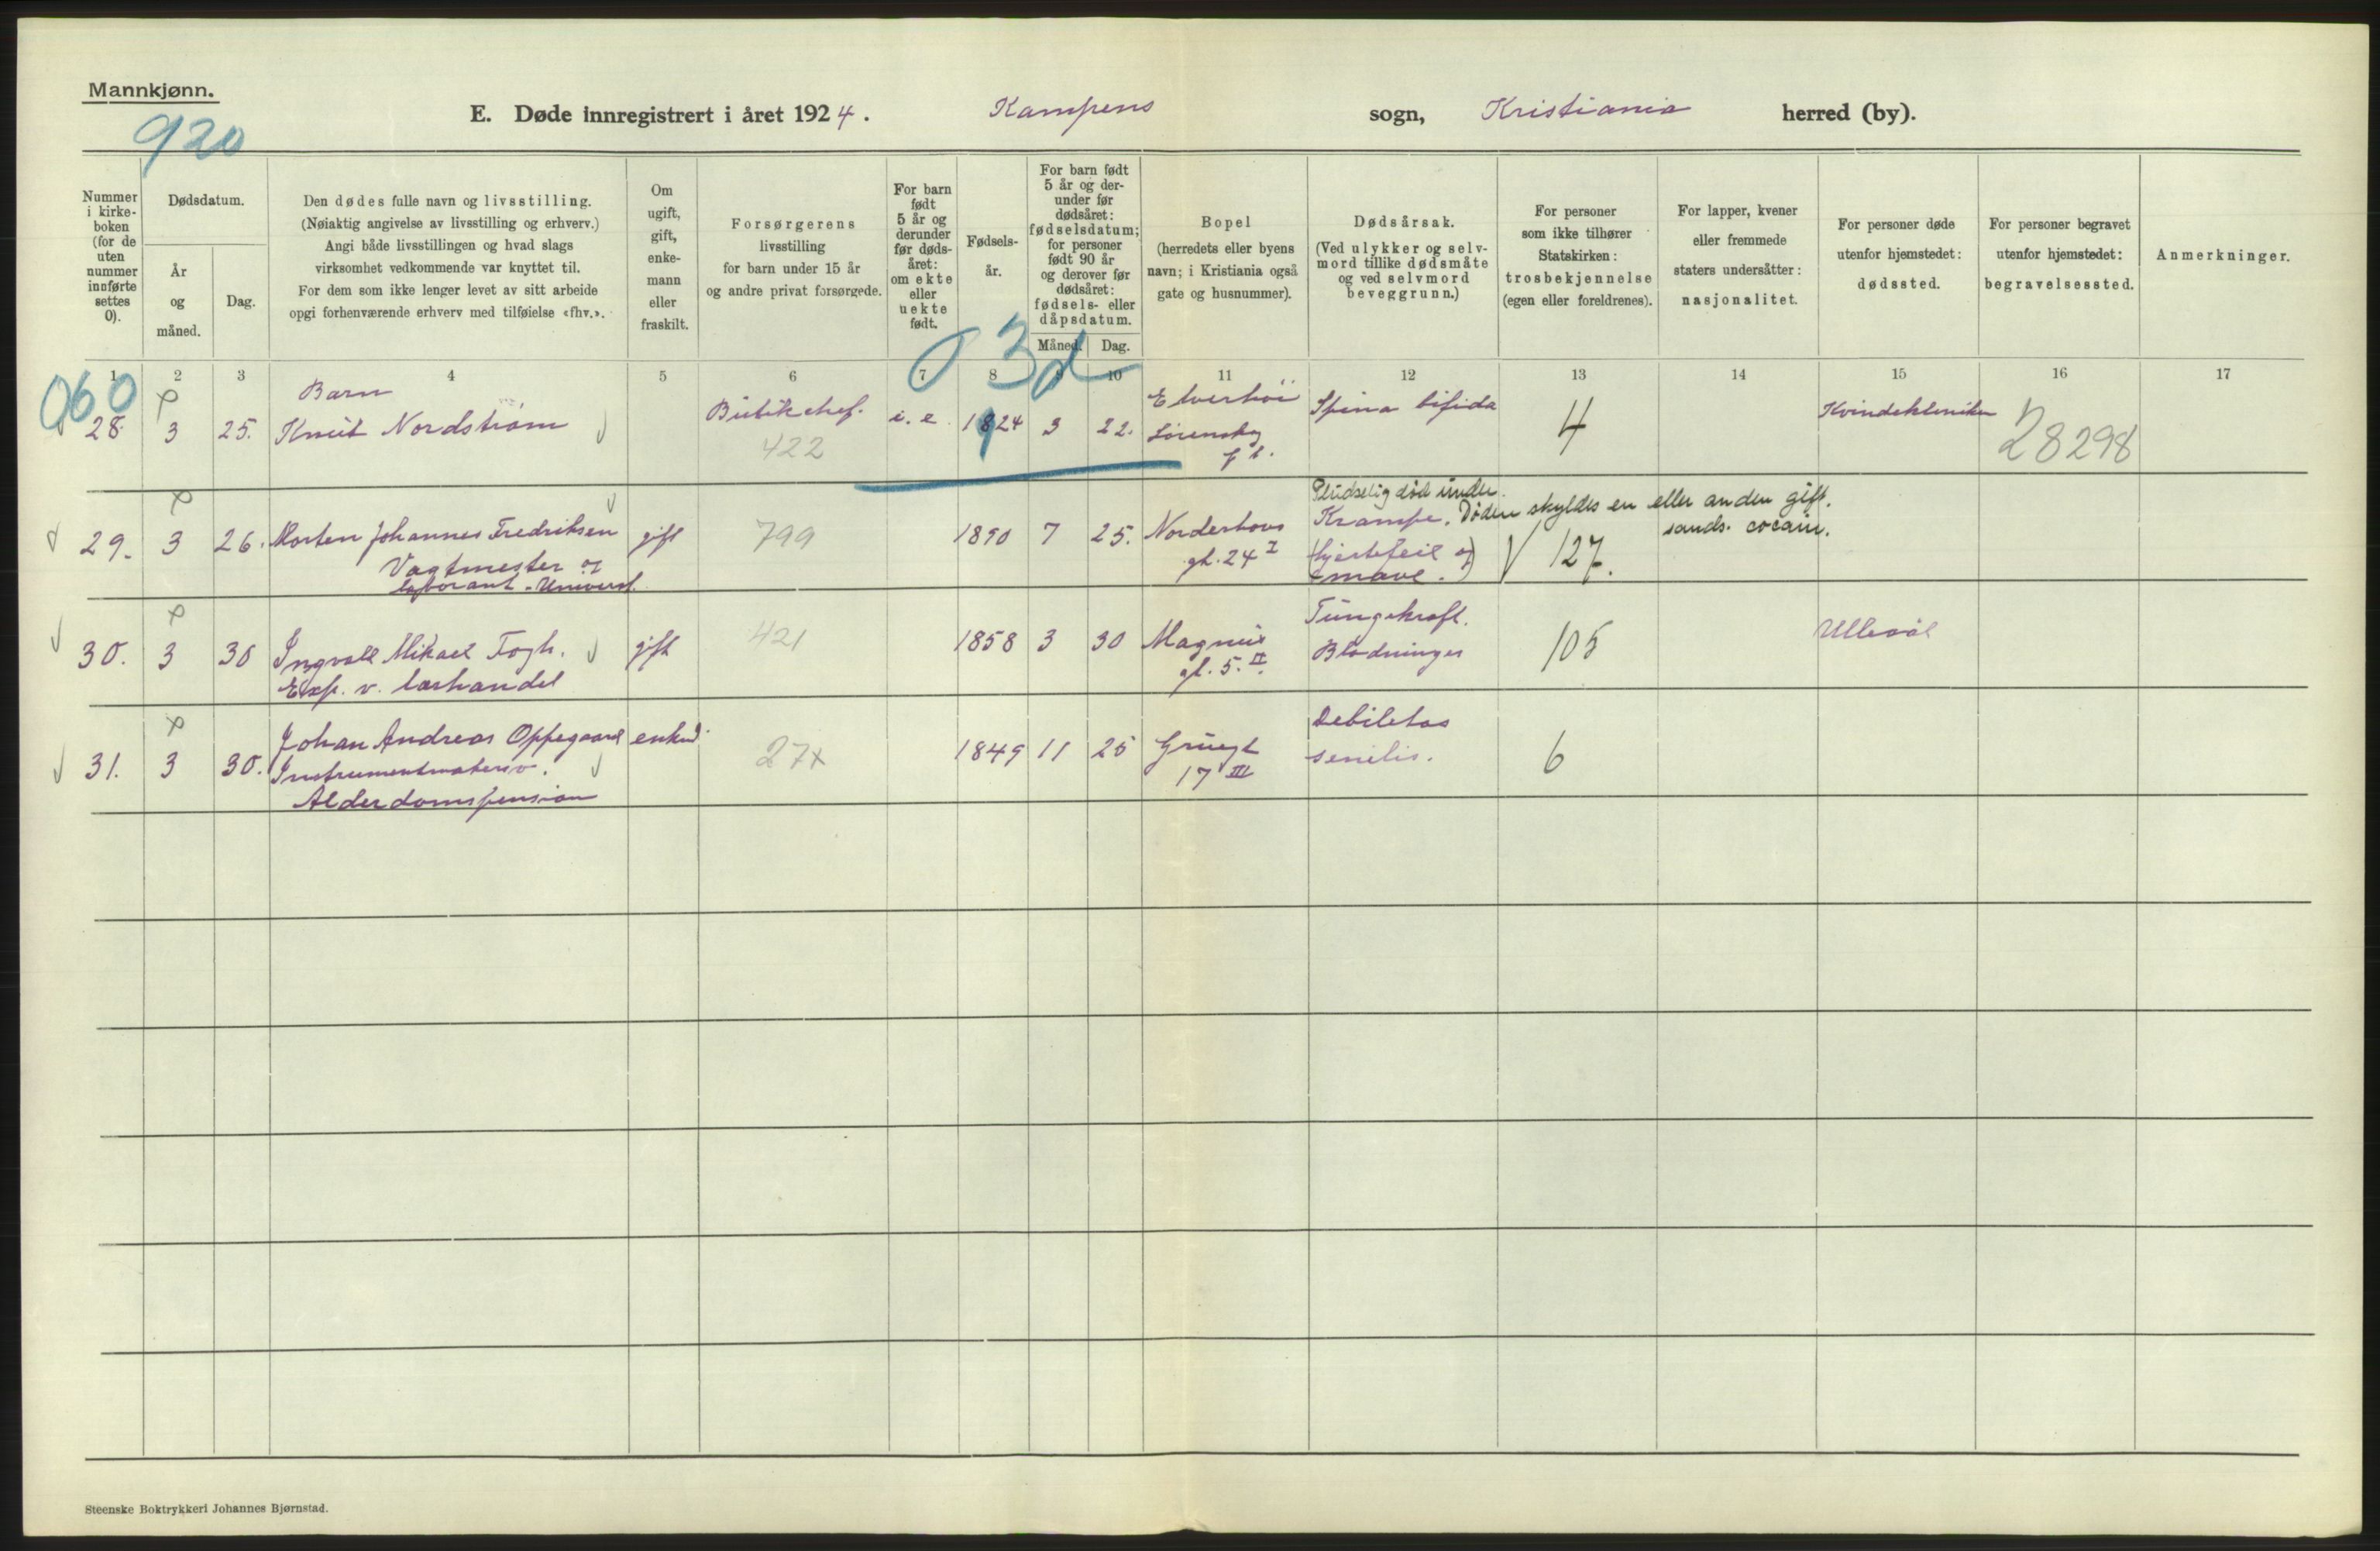 Mannkjønn.
920
E. Døde innregistrert i året 1924. Kampens sogn, Kristiania herred (by).
Nummer i kirke-boken (for de uten nummer innførte settes 0).
Dødsdatum.
År og måned.
Dag.
Den dødes fulle navn og livsstilling.
(Nøiaktig angivelse av livsstilling og erhverv.)
Angi både livsstillingen og hvad slags
virksomhet vedkommende var knyttet til.
For dem som ikke lenger levet av sitt arbeide
opgi forhenværende erhverv med tilføielse «fhv.».
Om ugift, gift, enke-mann eller fraskilt.
Forsørgerens
livsstilling
for barn under 15 år
og andre privat forsørgede.
For barn født 5 år og derunder før døds-året: om ekte eller uekte født.
Fødsels-år.
For barn født 5 år og der-under før dødsåret: fødselsdatum; for personer født 90 år og derover før dødsåret: fødsels- eller dåpsdatum.
Måned. Dag.
Bopel
(herredets eller byens
navn; i Kristiania også
gate og husnummer).
Dødsårsak.
(Ved ulykker og selv-
mord tillike dødsmåte
og ved selvmord
beveggrunn.)
For personer
som ikke tilhører
Statskirken:
trosbekjennelse
(egen eller foreldrenes).
For lapper, kvener
eller fremmede
staters undersåtter:
nasjonalitet.
For personer døde
utenfor hjemstedet:
dødssted.
For personer begravet
utenfor hjemstedet:
begravelsessted.
Anmerkninger.
1 2 3 4 5 6 7 8 9 10 11 12 13 14 15 16 17
060 0 3d
Barn
28 3 25. Knut Nordstrøm Butikchef. 422 1924 3 22. Lørenskog Spina bifida 4 Kvindekliniken 28298
29. 3 26. Morten Johannes Fredriksen gift 799 1890 7 25. Norderhovs
gt. 24 I
Vagtmester og
laborant - Universt.
Pludselig død under
Krampe. Døden skyldes en eller anden gift.
sands. cocain.
(Hjertefeil og
mave.) V 127.
30. 3 30 Ingvald Mikael Fogh. gift 421 1858 3 30 Magnus
gt. 5. II
Exp. v. lærhandel
Blødninger 105 Ullevål
31. 3 30. Johan Andreas Oppegaard enkm. 27x 1849 11 25 Gruegt
17 III
Alderdomspension
Debilitas
senilis. 6
Steenske Boktrykkeri Johannes Bjørnstad.